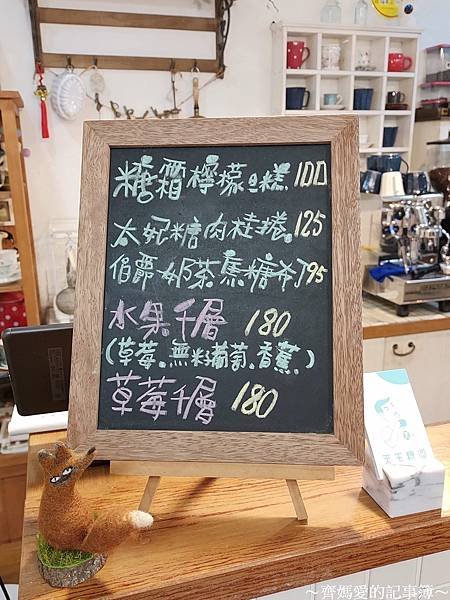 糖霜檸檬e糕 100
太妃糖肉桂捲 125
伯爵奶茶蕉糖布丁 95
水果千層 180
(草莓.無籽葡萄.香蕉.)
草莓千層 180
~齊媽愛的記事簿~